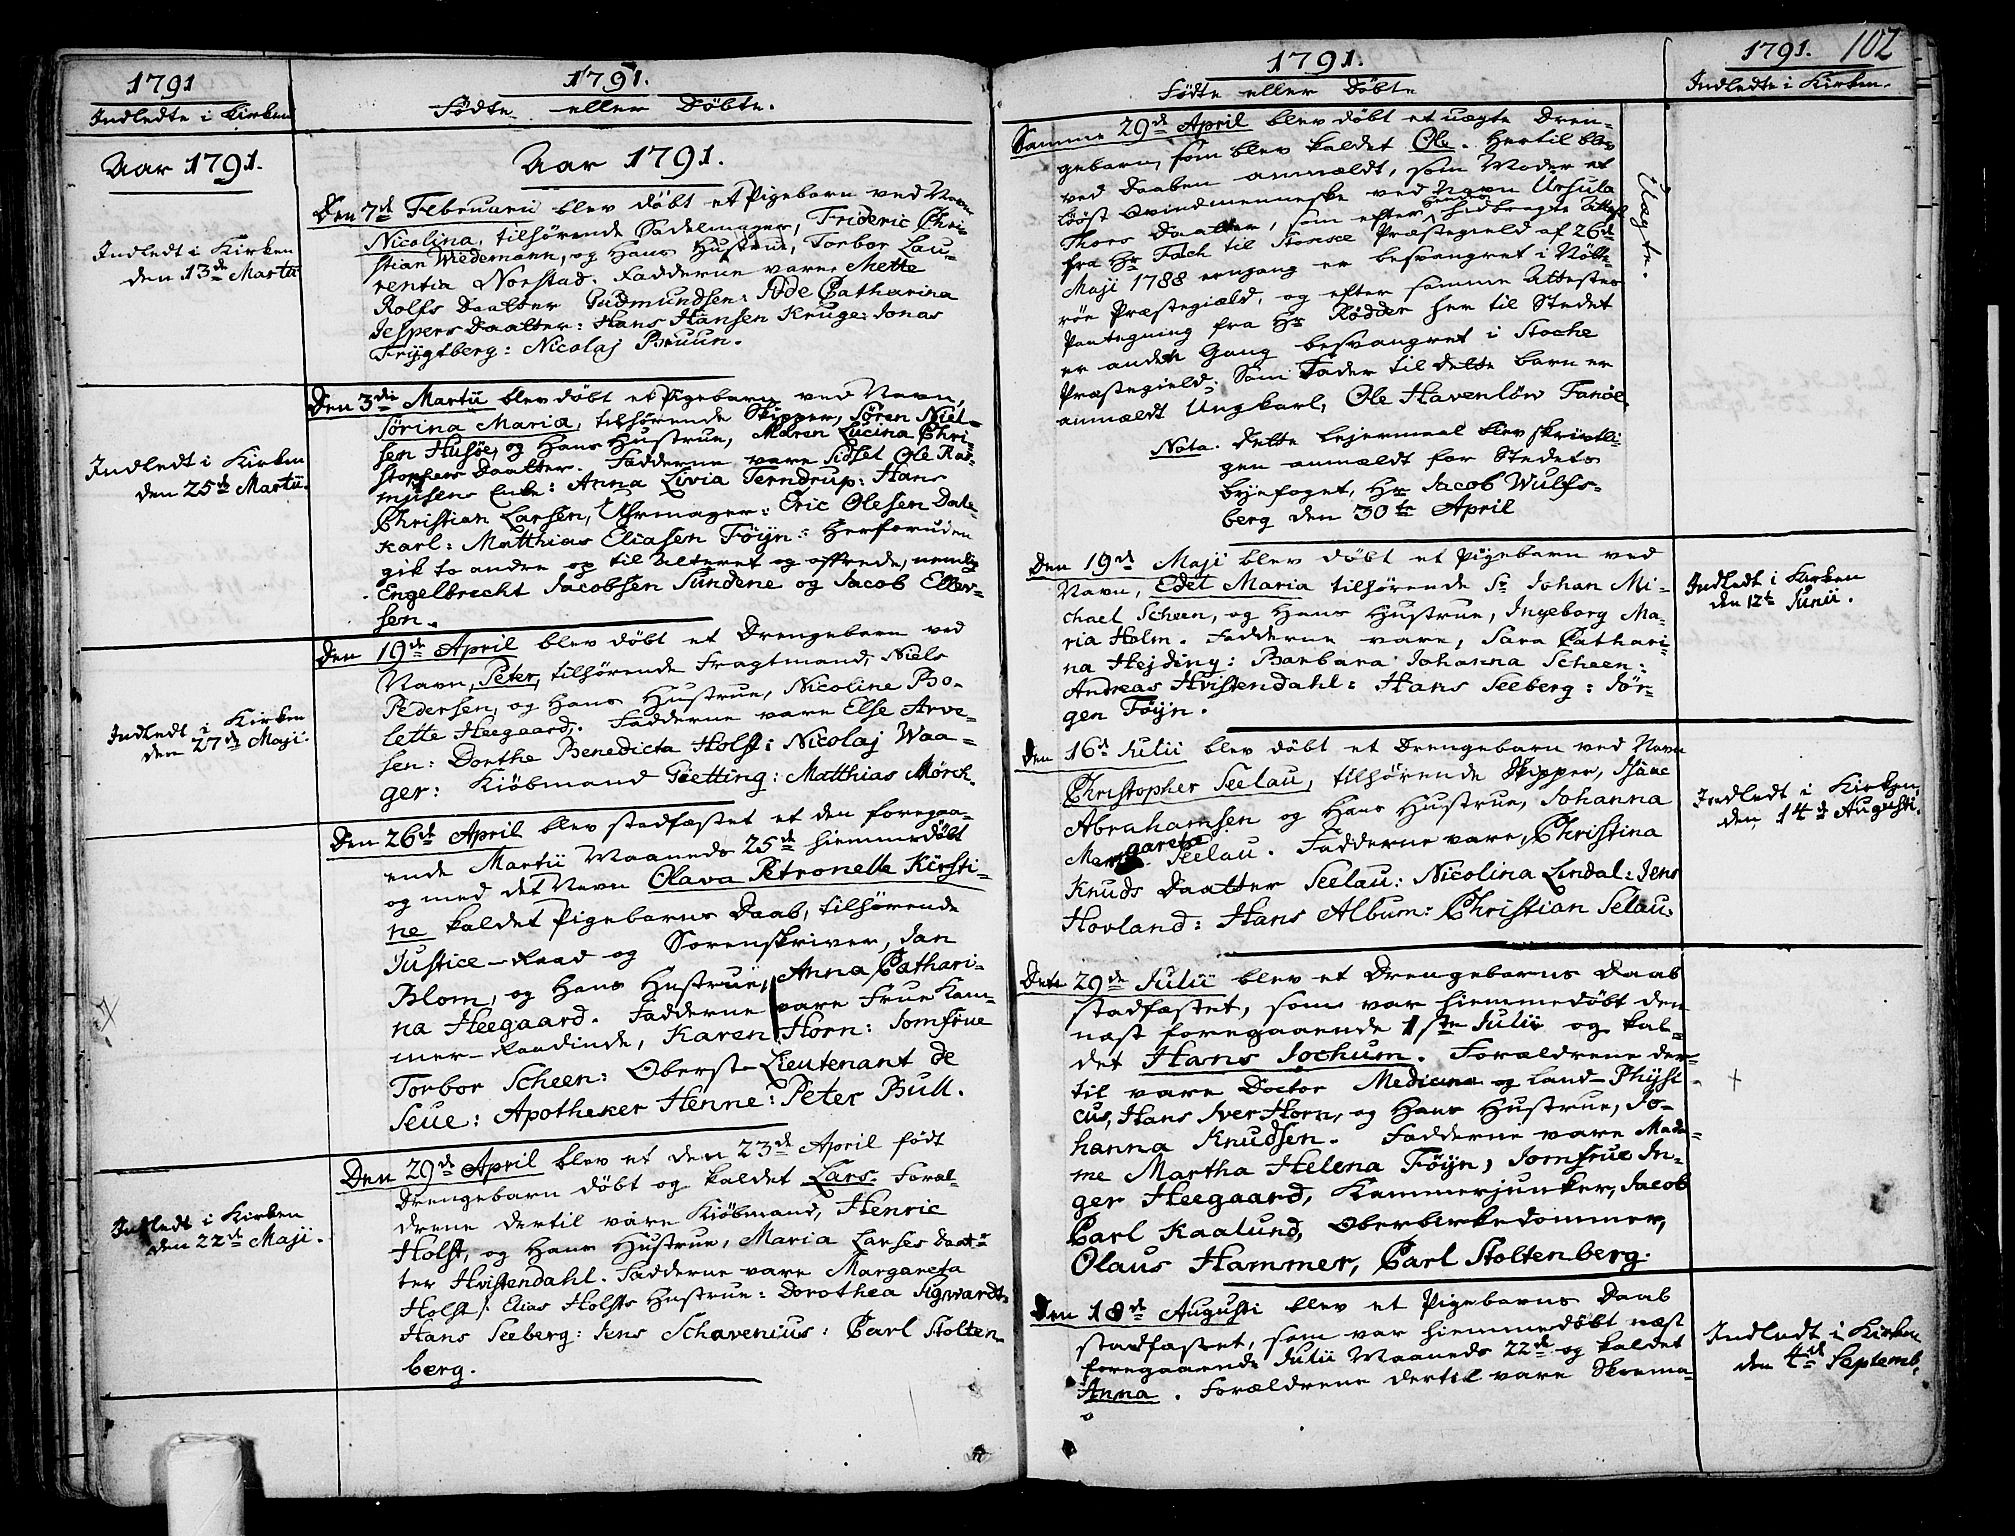 1791
Indledte i Kirken
Aar 1791.
Indledt i Kirken
den 13de Martii
Indledt i Kirken
den 25de Martii.
Indledt i Kirken
den 27de Maji.
Indledt i Kirken
den 22de Maji.
1791.
Födte eller Döbte.
Aar 1791.
Den 7de Februarii blev döbt et Pigebarn ved Navn
Nicolina, tilhörende Sadelmager, Frideric Chri-
stian Wiedemann, og Hans Hustrue, Torbor Lau-
rentia Norstad. Fadderne vare Mette
Rolfs Daatter Gudmundsen: Ide Catharina
Jespers Daatter: Hans Hansen Kruge: Jonas
Frygtberg: Nicolaj Bruun.
Den 3die Martii blev döbt et Pigebarn ved Navn,
Sörina Maria, tilhörende Skipper, Sören Niel-
sen Husöe, og Hans Hustrue, Maren Lucina Chri-
stophers Daatter. Fadderne vare Sidsel Ole Ras-
musens Enke: Anna Livia Terndrup: Hans
Christian Larsen, Uhrmager: Eric Olesen Dale-
karl: Matthias Eliasen Föyn: Herforuden
gik to andre op til Alteret og offrede, nemlig
Engelbrecht Jacobsen Sundene og Jacob Ellev-
sen.
Den 19de April blev döbt et Drengebarn ved
Navn, Peter, tilhörende Fragtmand, Niels
Pedersen, og Hans Hustrue, Nicoline Bo-
lette Heegaard. Fadderne vare Else Arve-
sen: Dorthe Benedicta Holst: Nicolaj Waa-
ger: Kiöbmand Gietting: Matthias Mörch.
Den 26de April blev stadfæstet et den foregaa-
ende Martii Maaneds 25de hiemmedöbt
og med det Navn Olava Petronelle Kirsti-
ne kaldet Pigebarns Daab, tilhörende
Justice-Raad og Sorenskriver, Jan
Blom, og Hans Hustrue, Anna Cathari-
na Heegaard. Fadderne vare Frue Kam-
mer-Raadinde, Karen Horn: Jomfrue
Torbor Scheen: Oberst-Lieutenant de
Seue: Apotheker Henne: Peter Bull.
Den 29de April blev et den 23de April födt
Drengebarn döbt og kaldet Lars. Foræl-
drene dertil vare Kiöbmand, Henric
Holst, og Hans Hustrue, Maria Larses Daat-
ter Hvistendahl. Fadderne vare Margareta
Holst, Elias Holsts Hustrue: Dorothea Sigwardt:
Hans Seeberg: Jens Schavenius: Carl Stolten-
berg.
1791.
Födte eller Döbte
Samme 29de April blev döbt et uægte Dren-
gebarn, som blev kaldet Ole. Hertil blev
ved Daaben anmældt, som Moder et
lööst Qvindmenneske ved Navn Ursula
Thors Daatter, som efter hendes hidbragte Attest
fra Hr Fach til Præstegield af 26de
Maji 1788 eengang er besvangret i Nötte-
röe Præstegiæld, og efter samme Attestes
Paategning fra Hr Rödder her til Stedet
er anden Gang besvangret i Stocke
Præstegield; Som Fader til dette barn er
anmældt Ungkarl, Ole Havenlöw Fanöe.
Nota. Dette Lejermaal blev skrivtli-
gen anmældt for Stedets
Byefoget, Hr Jacob Wulfs-
berg den 30te April
Uægte.
Den 19de Maji blev döbt et Pigebarn ved
Navn, Edel Maria tilhörende Sr Johan Mi-
chael Scheen, og Hans Hustrue, Ingeborg Ma-
ria Holm. Fadderne vare, Sara Cathari-
na Hejding: Barbara Johanna Scheen:
Andreas Hvistendahl: Hans Seeberg: Jör-
gen Föyn.
Den 16de Julii blev döbt et Drengebarn ved Navn
Christopher Seelau, tilhörende Skipper, Isaac
Abrahamsen og Hans Hustrue, Johanna
Margarete Seelau. Fadderne vare, Christina
Knuds Daatter Seelau: Nicolina Lindal: Jens
Hovland: Hans Album: Christian Selau.
Den 29de Julii blev et Drengebarns Daab
stadfæstet, som var hiemmedöbt den
næst foregaaende 1ste Julii og kal-
det Hans Jochum. Forældrene der-
til vare Doctor Medicina og Land-Physi-
cus, Hans Iver Horn, og Hans Hustrue, Jo-
hanna Knudsen. Fadderne vare Mada-
me Martha Helena Föyn, Jomfrue In-
ger Heegaard, Kammerjunker, Jacob
Carl Kaalund, Oberbirkedommer,
Olaus Hammer, Carl Stoltenberg.
Den 18de Augusti blev et Pigebarns Daab
stadfæstet, som var hiemmedöbt næst
foregaaende Julii Maaneds 22de og kaldet
Anna. Forældrene dertil vare Skoema-
1791. 102
Indledte i Kirken.
Indledt i Kirken
den 12te Junii.
Indledt i Kirken
den 14de Augusti.
Indledt i Kirken
den 4de Septemb.